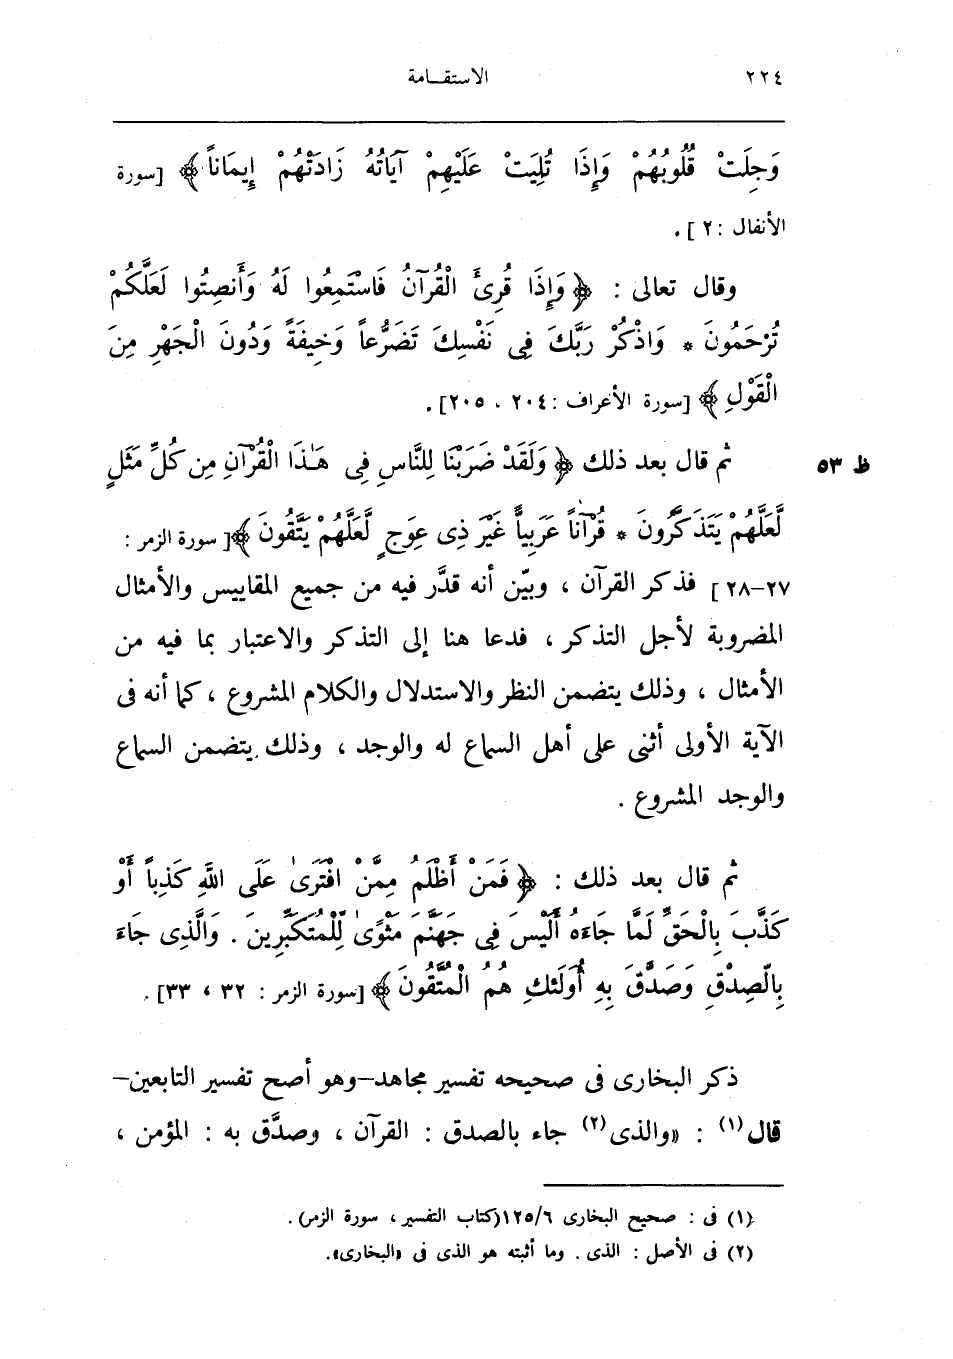 ٢٢٤ الاستقــامة
وَجِلَتْ قُلُوبُهُمْ وَإِذَا تُلِيَتْ عَلَيْهِمْ آيَاتُهُ زَادَتْهُمْ إِيمَاناً﴾ [سورة
الأنفال : ٢ ] .
وقال تعالى : ﴿وَإِذَا قُرِئَ الْقُرْآنُ فَاسْتَمِعُوا لَهُ وَأَنصِتُوا لَعَلَّكُمْ
تُرْحَمُونَ * وَاذْكُرْ رَبَّكَ فِى نَفْسِكَ تَضَرُّعاً وَخِيفَةً وَدُونَ الْجَهْرِ مِنَ
الْقَوْلِ﴾ [سورة الأعراف : ٢٠٤ ، ٢٠٥] .
ثم قال بعد ذلك ﴿وَلَقَدْ ضَرَبْنَا لِلنَّاسِ فِى هَـٰذَا الْقُرْآنِ مِن كُلِّ مَثَلٍ ظ ٥٣
لَّعَلَّهُمْ يَتَذَكَّرُونَ * قُرْآناً عَرَبِياًّ غَيْرَ ذِى عِوَجٍ لَّعَلَّهُمْ يَتَّقُونَ﴾[ سورة الزمر :
٢٧–٢٨ ] فذكر القرآن ، وبيّن أنه قدَّر فيه من جميع المقاييس والأمثال
المضروبة لأجل التذكر ، فدعا هنا إلى التذكر والاعتبار بما فيه من
الأمثال ، وذلك يتضمن النظر والاستدلال والكلام المشروع ، كما أنه فى
الآية الأولى أثنى على أهل السماع له والوجد ، وذلك يتضمن السماع
والوجد المشروع .
ثم قال بعد ذلك : ﴿فَمَنْ أَظْلَمُ مِمَّنْ افْتَرَىٰ عَلَى اللَّهِ كَذِباً أَوْ
كَذَّبَ بِالْحَقِّ لَمَّا جَاءَهُ أَلَيْسَ فِى جَهَنَّمَ مَثْوًى لِّلْمُتَكَبِّرِينَ . وَالَّذِى جَاءَ
بِالصِدْقِ وَصَدَّقَ بِهِ أُولَئكِ هُمُ الْمُتَّقُونَ﴾ [سورة الزمر : ٣٢ ، ٣٣] .
ذكر البخارى فى صحيحه تفسير مجاهد–وهو أصح تفسير التابعين–
قال(١) : «والذى(٢) جاء بالصدق : القرآن ، وصدَّق به : المؤمن ،
(١) فى : صحيح البخارى ١٢٥/٦(كتاب التفسير ، سورة الزمر) .
(٢) فى الأصل : الذى . وما أثبته هو الذى فى «البخارى» .